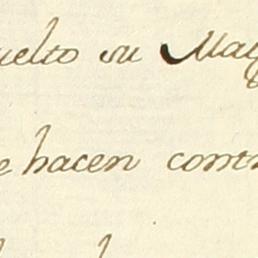 uelto su Mag
e hacen contr